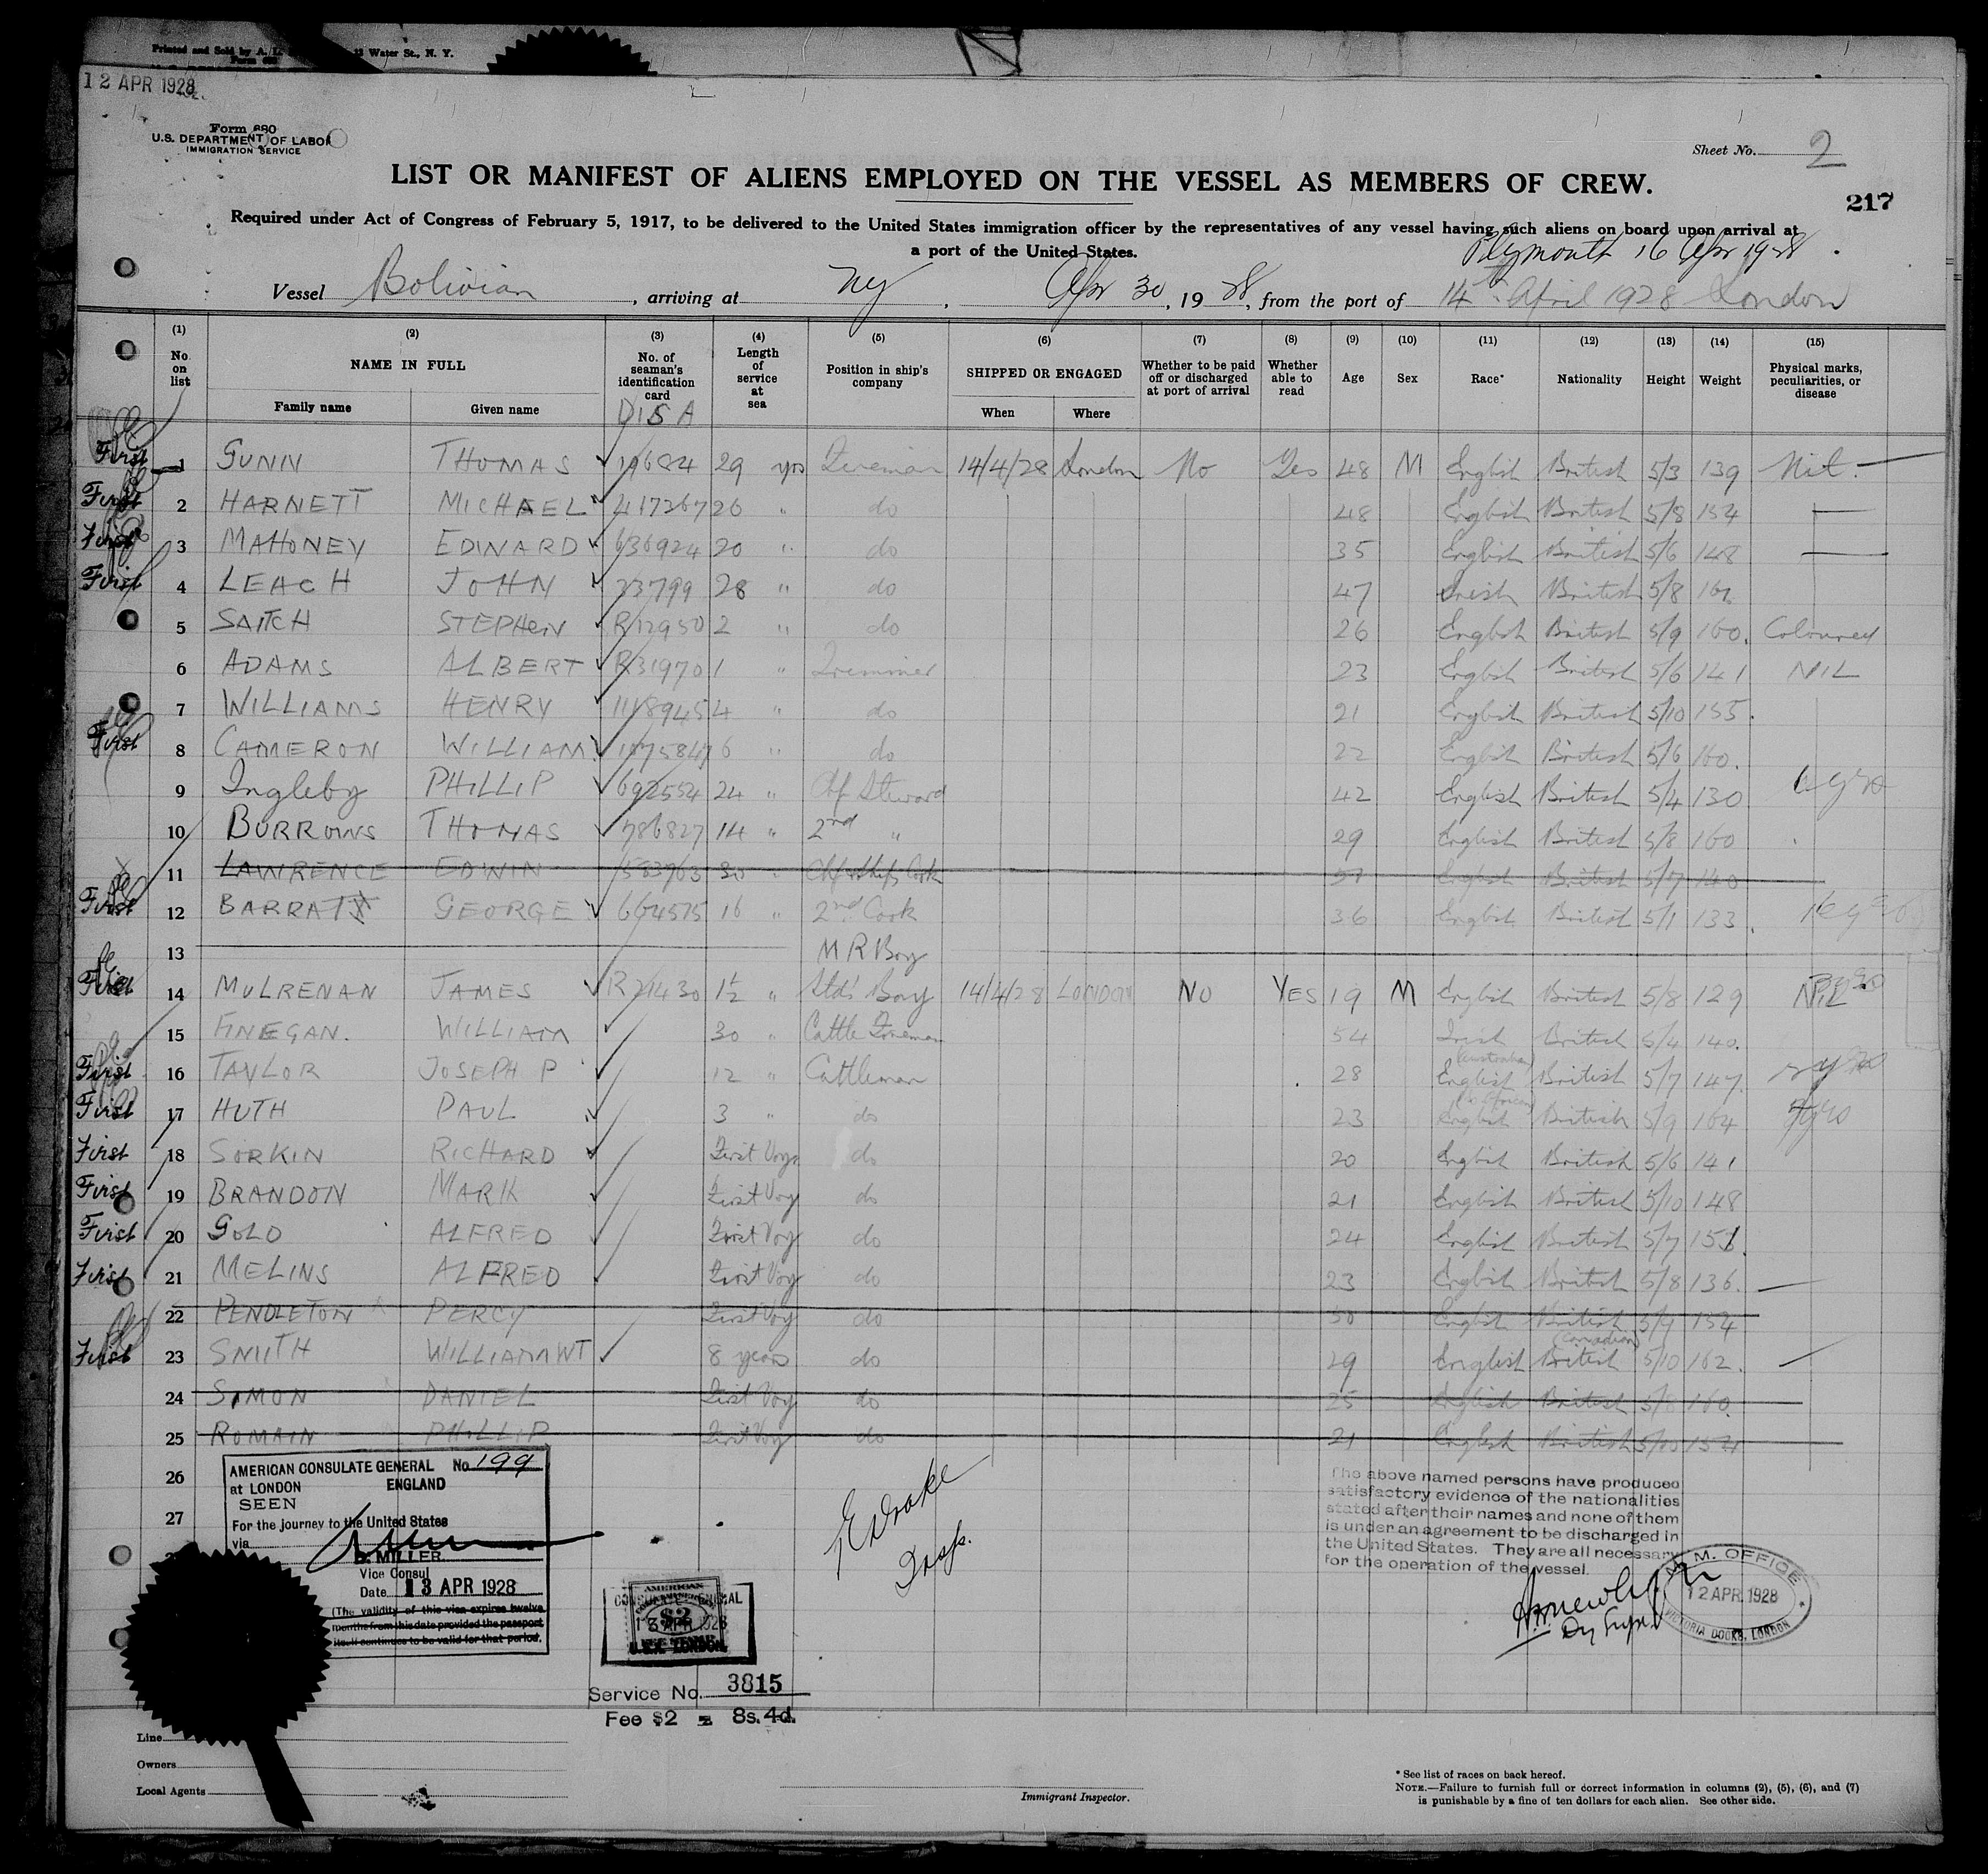 Printed and Sold by A. L. 12 Water St., N. Y.
12 APR 1928
Form 680
U.S. DEPARTMENT OF LABOR
IMMIGRATION SERVICE
Sheet No. 2
LIST OR MANIFEST OF ALIENS EMPLOYED ON THE VESSEL AS MEMBERS OF CREW.
217
Required under Act of Congress of February 5, 1917, to be delivered to the United States immigration officer by the representatives of any vessel having such aliens on board upon arrival at
a port of the United States.
Plymouth 16 Apr 1928
Vessel Bolivian, arriving at NY, Apr 30, 1928, from the port of 14th April 1928 London
(1) (2) (3) (4) (5) (6) (7) (8) (9) (10) (11) (12) (13) (14) (15)
No. on list NAME IN FULL No. of seaman's identification card Length of service at sea Position in ship's company SHIPPED OR ENGAGED Whether to be paid off or discharged at port of arrival Whether able to read Age Sex Race* Nationality Height Weight Physical marks, peculiarities, or disease
Family name Given name DIS A When Where
First 1 GUNN THOMAS 19684 29 yrs Fireman 14/4/28 London No Yes 48 M English British 5/3 139 Nil.
First 2 HARNETT MICHAEL 417267 26 " do 48 English British 5/8 154
First 3 MAHONEY EDWARD 636924 20 " do 35 English British 5/6 148
First 4 LEACH JOHN 33799 28 " do 47 Irish British 5/8
5 SAITCH STEPHEN R12950 2 " do 26 English British 5/9 160. Coloured
6 ADAMS ALBERT R31970 1 " Trimmer 23 English British 5/6 141 NIL
7 WILLIAMS HENRY 1118945 4 " do 21 English British 5/10 155.
First 8 CAMERON WILLIAM 1075847 6 " do 22 English British 5/6 160.
9 Ingleby PHILLIP 692554 24 " Chf Steward 42 English British 5/4 130
10 BURROWS THOMAS 786827 14 " 2nd " 29 English British 5/8 160
11 LAWRENCE EDWIN 583763 30 " Chf & Ships Cook 57 English British 5/7 140
First 12 BARRATT GEORGE 664575 16 " 2nd Cook 36 English British 5/1 133.
13 M R Boy
First 14 MULRENAN JAMES R21430 1½ " Stds Boy 14/4/28 LONDON NO YES 19 M English British 5/8 129 NIL
15 FINEGAN. WILLIAM 30 " Cattle Foreman 54 Irish British 5/4 140.
First 16 TAYLOR JOSEPH P 12 " Cattleman 28 (Australia) English British 5/7 147.
First 17 HUTH PAUL 3 " do 23 (S. African) English British 5/9 164
First 18 SORKIN RICHARD First Voy. do 20 English British 5/6 141
First 19 BRANDON MARK First Voy do 21 English British 5/10 148
First 20 GOLD ALFRED First Voy do 24 English British 5/7 151.
First 21 MELINS ALFRED First Voy do 23 English British 5/8 136.
22 PENDLETON PERCY First Voy do 30 English British 5/9 154
First 23 SMITH WILLIAM WT 8 years do 29 English (Canadian) British 5/10 162.
24 SIMON DANIEL First Voy do 25 English British 5/8 160.
25 ROMAIN PHILLIP First Voy do 21 English British 5/10 154
26
27
AMERICAN CONSULATE GENERAL No. 199
at LONDON ENGLAND
SEEN
For the journey to the United States
via
MILLER
Vice Consul
Date 13 APR 1928
(The validity of this visa expires twelve
months from this date provided the passport
itself continues to be valid for that period.
E Drake
Insp.
The above named persons have produced
satisfactory evidence of the nationalities
stated after their names and none of them
is under an agreement to be discharged in
the United States. They are all necessary
for the operation of the vessel.
Dy Supt
M. M. OFFICE
12 APR. 1928
VICTORIA DOCKS, LONDON
AMERICAN
CONSULATE GENERAL
$2
13 APR 1928
LONDON
Service No. 3815
Fee $2 = 8s. 4d.
Line
Owners
Local Agents
Immigrant Inspector.
* See list of races on back hereof.
NOTE.—Failure to furnish full or correct information in columns (2), (5), (6), and (7)
is punishable by a fine of ten dollars for each alien. See other side.